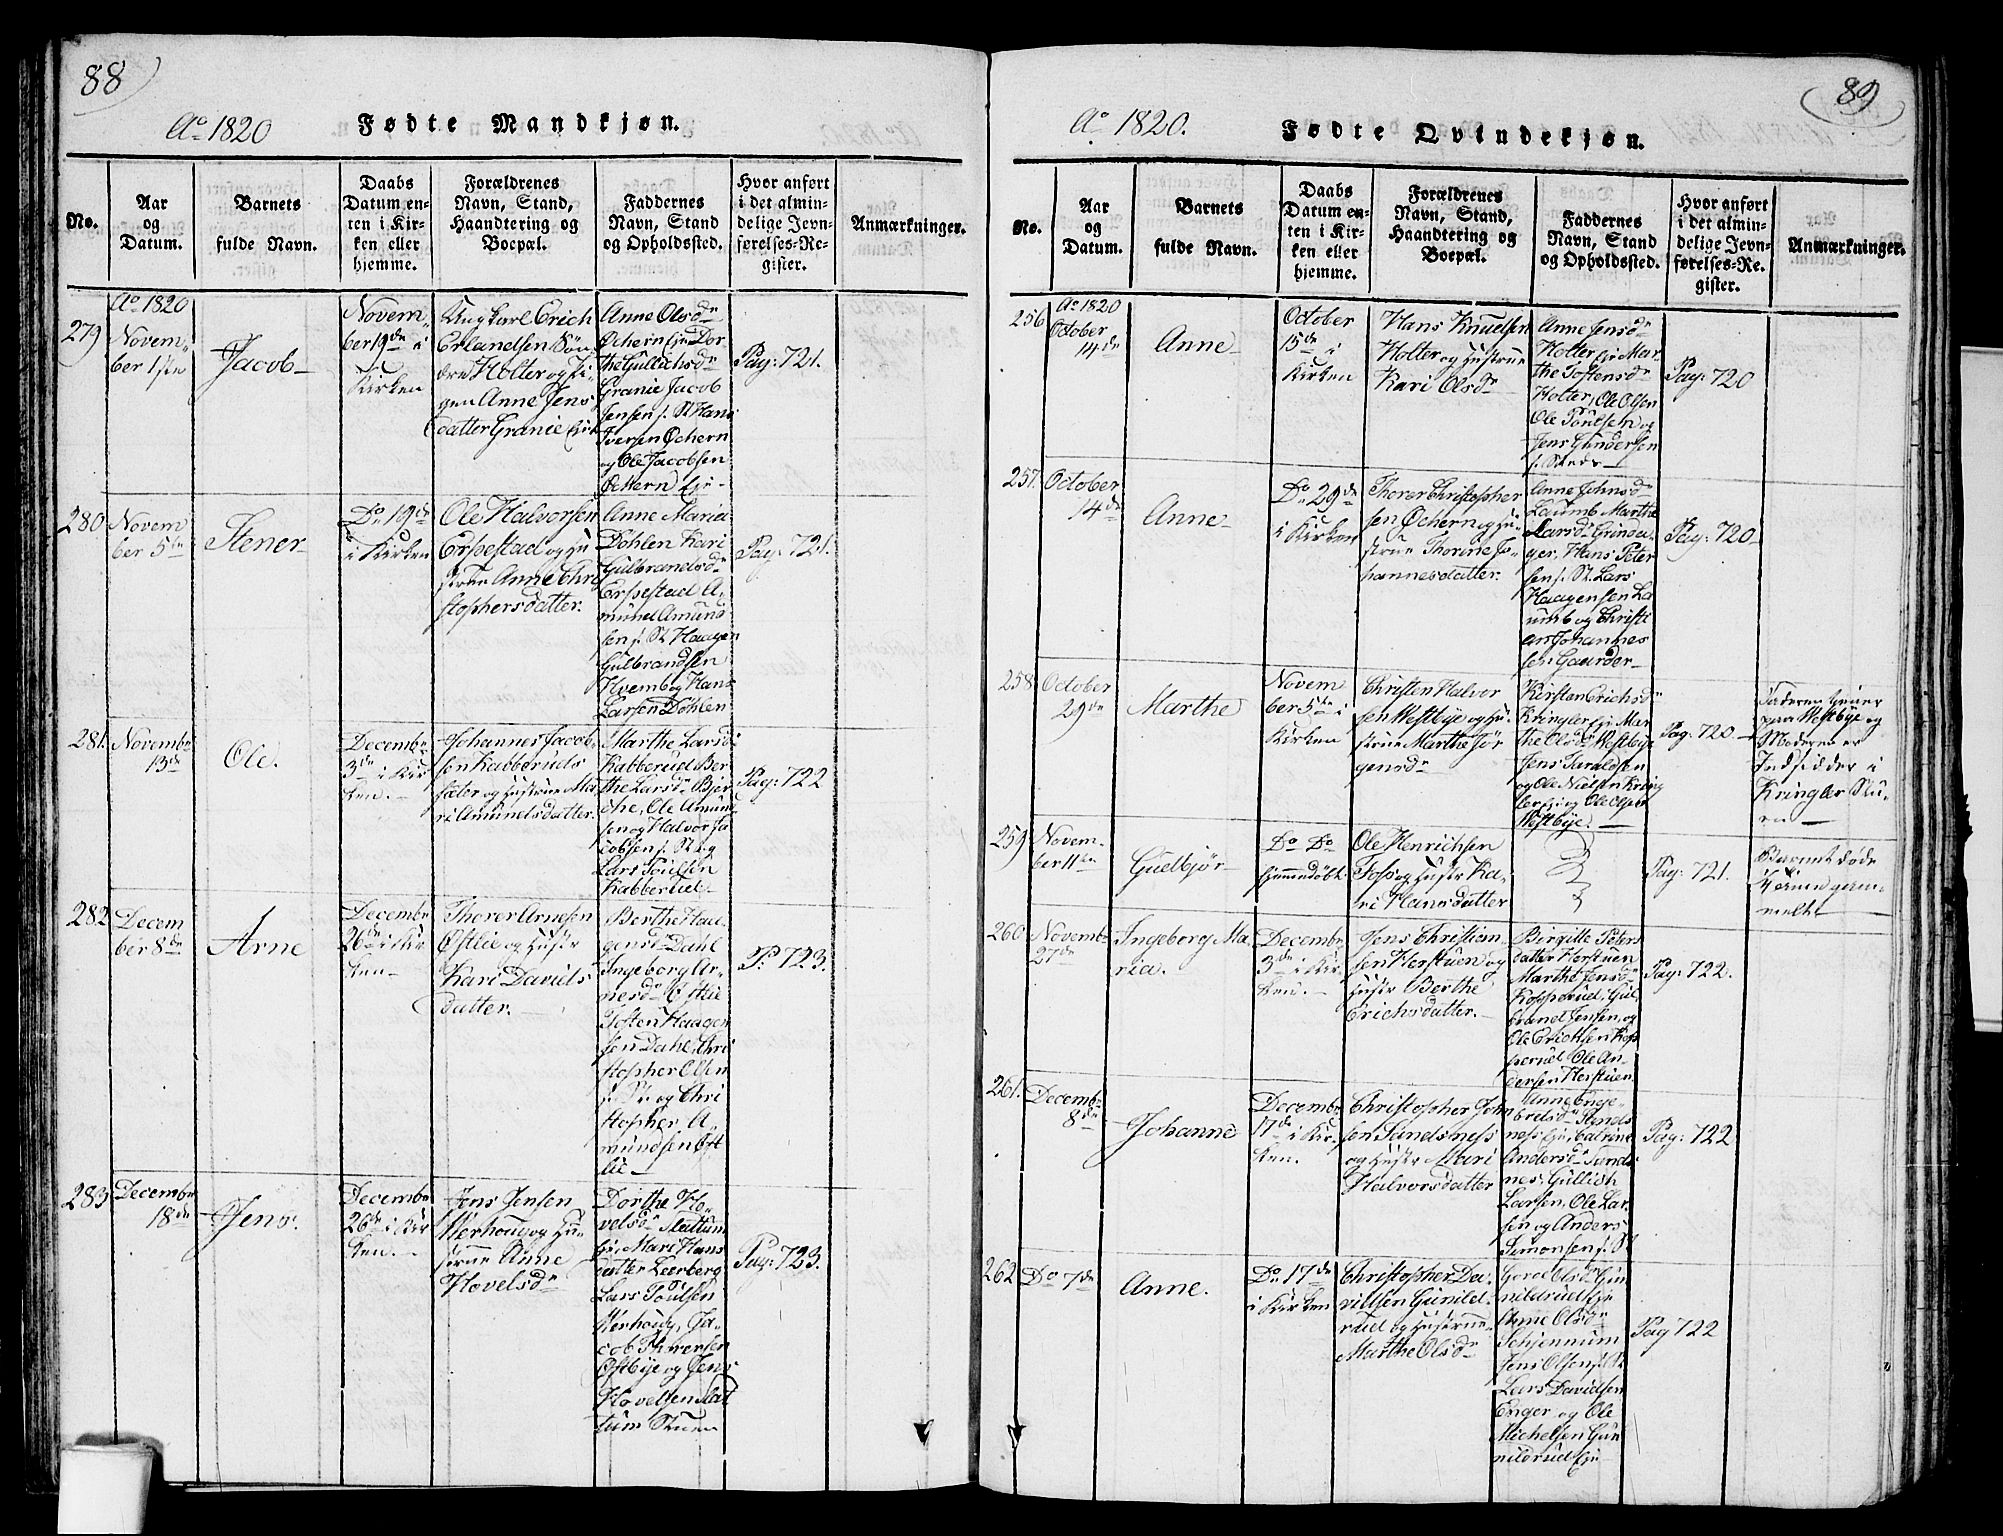 88
Ao 1820
Fødte Mandkjøn.
No.
Aar
og
Datum.
Barnets
fulde Navn.
Daabs
Datum en-
ten i Kir-
ken eller
hjemme.
Forældrenes
Navn, Stand,
Haandtering og
Boepæl.
Faddernes
Navn, Stand
og Opholdssted.
Hvor anført
i det almin-
delige Jevn-
førelses-Re-
gister.
Anmærkninger.
279
Ao 1820
Novem-
ber 1ste
Jacob
Novem-
ber 19de i
Kirken
Ungkarl Erich
Erlandsen Søn-
dre Holter og Pi-
gen Anne Jens
datter Granie
Anne Olsdr
Ochern Eje Dor
the Gullichsdr
Granie Jacob
Jensen f. St Hans
Iversen Ochern
og Ole Jacobsen
Ochern Eje
Pag: 721.
280
Novem
ber 5te
Stener
Do 19de
i Kirken
Ole Halvorsen
Erpestad og Hu
strue Anne Chri
stophersdatter.
Anne Maria
Döhlen Kari
Gulbrandsdr
Erpestad A-
mund Amund
sen f. St Haagen
Gulbrandsen
Hvemb og Hans
Larsen Döhlen
Pag: 721.
281.
Novembr
13de
Ole.
Decembr
3de i Kir
ken.
Johannes Jacob-
sen Kabberuds
og Hustrue Ma
ri Amundsdatter.
Marthe Larsdr
Kabberud Ber
the Larsdr Bjer
che, Ole Amund
sen og Halvor Ja
cobsen f. St. og
Lars Poulsen
Kabberud
Pag: 722
282
Decem
ber 8de
Arne
Decembr
26de i Kir
ken
Thorer Arnesen
Østlie og Hustr
Kari Davids
datter.
Berthe Haa-
gensdr Dahl
Ingeborg Ar-
nesdr Østlie
Tosten Haagen
sen Dahl, Chri
stopher Olsen
f. St. og Chri
stopher A-
mundsen Øst
lie
P. 723.
283
Decembr
18de
Jens.
Decembr
26de i Kir
ken.
Jens Jensen
Werhoug og Hu-
strue Anne
Hovelsdr
Dorthe Ho-
velsdr Slattum
Eje, Mari Hans
datter Leerberg
Lars Poulsen
Werhoug, Ja-
cob Thorersen
Østbye og Jens
Hovelsen Slat
tum Stuen
Pag: 723.
89
Ao 1820.
Fødte Qvindekjøn.
No.
Aar
og
Datum.
Barnets
fulde Navn.
Daabs
Datum en-
ten i Kir-
ken eller
hjemme.
Forældrenes
Navn, Stand,
Haandtering og
Boepæl.
Faddernes
Navn, Stand
og Opholdssted.
Hvor anført
i det almin-
delige Jevn-
førelses-Re-
gister.
Anmærkninger.
256
Ao 1820
October
14de
Anne
October
15de i
Kirken
Hans Knudsen
Holter og Hustrue
Kari Olsdr
Anne Jensdr
Holter Eje Mar
the Tostensdr
Holter, Ole Olsen
Ole Poulsen og
Jens Gundersen
f. Steds
Pag: 720
257.
October
14de
Anne
Do 29de
i Kirken
Thorer Christopher
sen Ochern og Hu-
strue Thorine Jo-
hannesdatter.
Anne Johnsdr
Laumb Marthe
Larsdr Grinda-
ger, Hans Peter
sen f. St. Lars
Haagensen La
umb og Christi
an Johannes
sen Gaarder
Pag: 720
258
October
29de
Marthe
Novem
ber 5te i
Kirken
Christen Halvor
sen Westbye og Hu-
strue Marthe Jör
gensdr
Kirstan Erichsdr
Kringler Eje Mar
the Olsdr Westbye
Jens Taraldsen
og Ole Nielsen Kring
ler Eje og Ole Olsen
Westbye.
Pag: 720.
Faderen tjener
paa Westbye og
Moderen er
Indsidder i
Kringler Stu-
en
259
Novem-
ber 11te
Guelbjör
Do Do
hjemmedöbt
Ole Henrichsen
Foss og Hustr Ka-
ri Hansdatter
Pag: 721.
Barnet döde
260
Novembr
27de
Ingeborg Ma-
ria.
Decembr
3de i Kir-
ken.
Jens Christian-
sen Herstuen og
Hustr Berthe
Erichsdatter.
Birgitte Peters
datter Herstuen
Marthe Jensdr
Kopperud, Gul-
brand Jensen, og
Ole Erichsen Kop
perud Ole An-
dersen Herstuen
Pag: 722.
261.
Decembr
8de
Johanne
Decembr
17de i Kir-
ken.
Christopher John
sen Sandsness
og Hustr Mari
Halvorsdatter
Anne Enge-
bretsdr Sands
ness Eje, Catrine
Andersdr Sands
nes, Gullich
Larsen, Ole Lar-
sen og Anders
Simonsen f. St
Pag: 722
262
Do 7de
Anne.
Do 17de
i Kirken
Christopher Da-
vidsen Gunild-
rud og Hustrue
Marthe Olsdr
Goroe Olsdr Gun
nildrud Eje
Anne Olsdr
Schjennum
Jens Olsen f. St
Lars Davidsen
Enger og Ole
Michelsen Gun
nildrud Eje
Pag 722